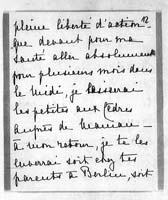 12
pleine liberté d'action
que devant pour ma
santé aller absolument
pour plusieurs mois dans
le Midi, je laisserai
les petites aux Cèdres
auprès de Maman –
à mon retour, je te les
enverrai soit chez tes
parents à Berlin, soit